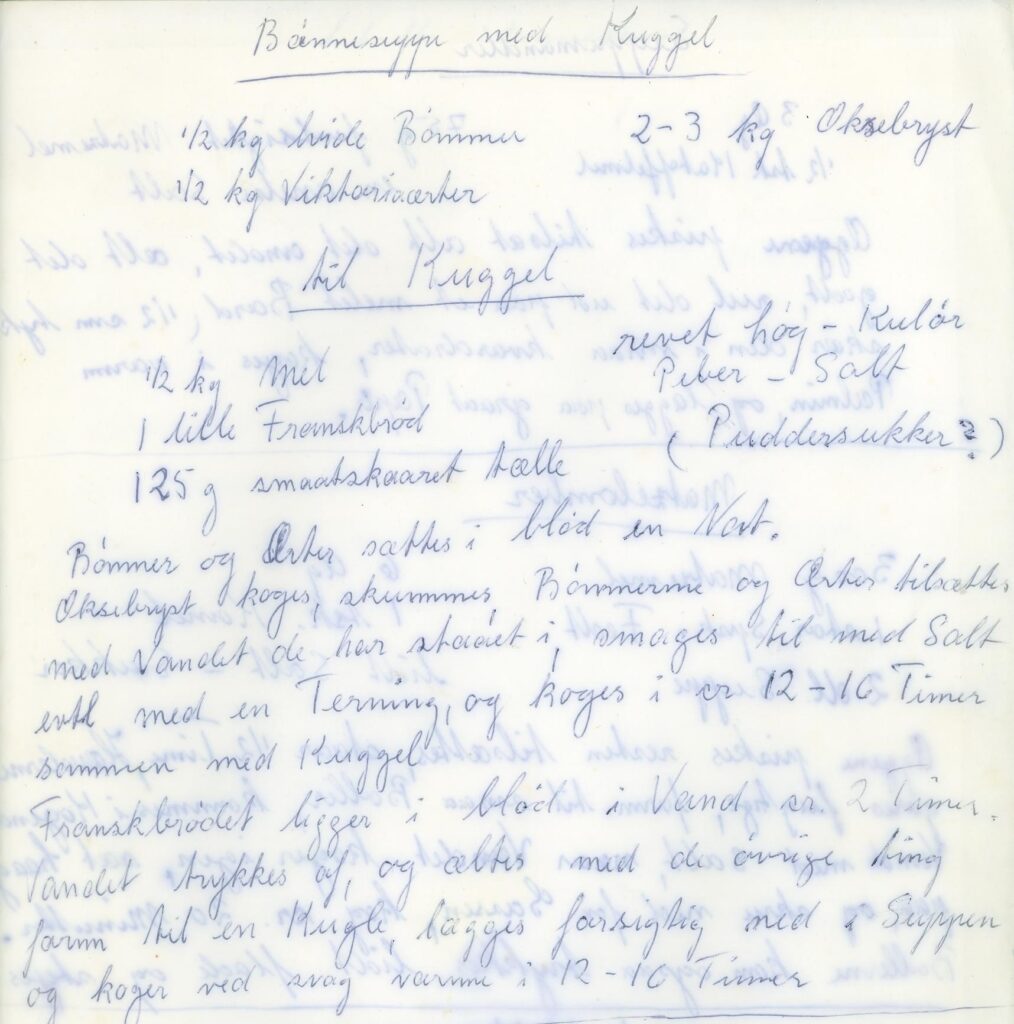 Bönnesuppe med Kuggel
1/2 kg hvide Bönner 2-3 kg Oksebryst
1/2 kg Viktoriaærter
til Kuggel
revet løg - Kulör
1/2 kg Mel Peber - Salt
1 lille Franskbröd (Puddersukker?)
125 g smaatskaaret tælle
Bönner og Ærter sættes i blöd en Nat.
Oksebryst koges, skummes, Bönnerne og Ærter tilsættes
med Vandet de har staaet i, smages til med Salt
evtl med en Terning, og koges i cr 12-16 Timer
sammen med Kuggel.
Franskbrödet ligger i blöd i Vand cr. 2 Timer.
Vandet trykkes af, og æltes med de övrige ting
form til en Kugle, lægges forsigtig ned i Suppen
og koger ved svag varme i 12-16 Timer